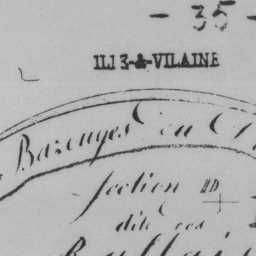 - 35 -
ILLE-&-VILAINE
Bazouges du
Section D
dite des